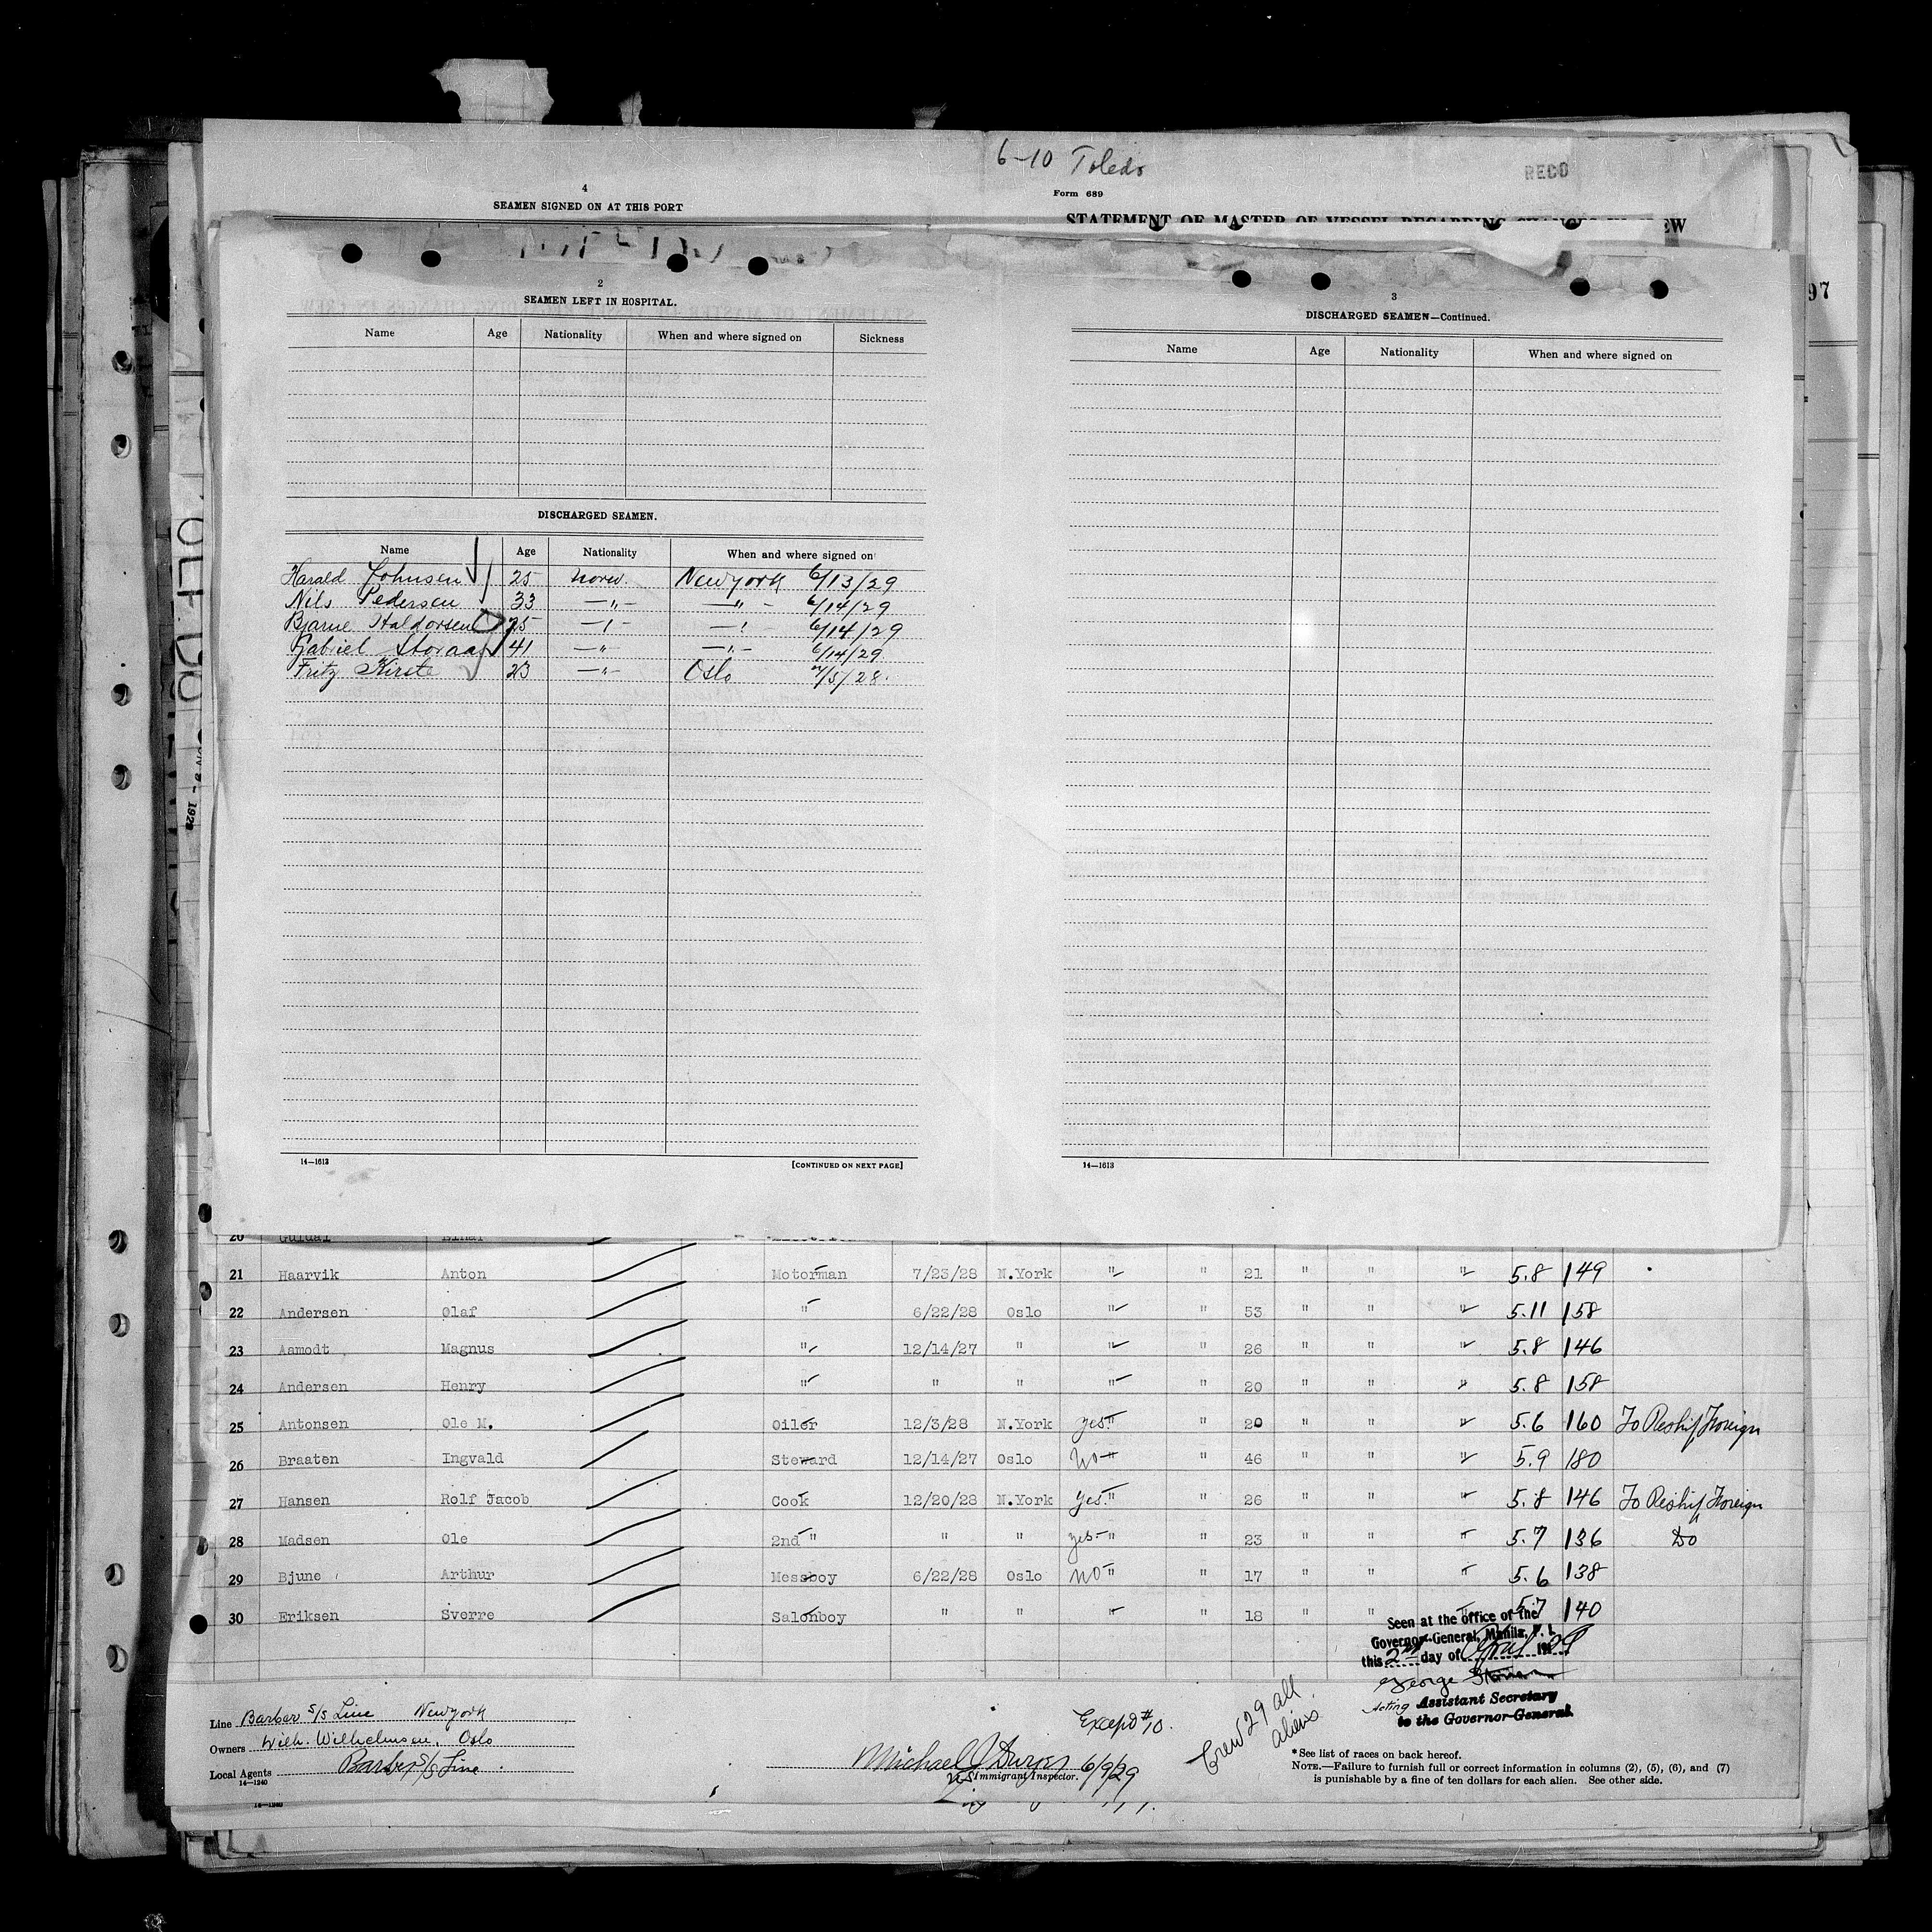 6-10 Toledo
RECD
4
SEAMEN SIGNED ON AT THIS PORT
Form 689
STATEMENT OF MASTER OF VESSEL REGARDING CHANGES IN CREW
97
2
SEAMEN LEFT IN HOSPITAL.
Name Age Nationality When and where signed on Sickness
DISCHARGED SEAMEN.
Name Age Nationality When and where signed on
Harald Johnsen 25 Norw. Newyork 6/13/29
Nils Pedersen 33 —"— —"— 6/14/29
Bjarne Haldorsen 25 —"— —"— 6/14/29
Gabriel Storaas 41 —"— —"— 6/14/29
Fritz Kirste 23 —"— Oslo /5/28.
14—1613 [CONTINUED ON NEXT PAGE]
3
DISCHARGED SEAMEN—Continued.
Name Age Nationality When and where signed on
14—1613
20
21 Haarvik Anton Motorman 7/23/28 N.York " " 21 " " " 5.8 149
22 Andersen Olaf " 6/22/28 Oslo " " 53 " " " 5.11 158
23 Aamodt Magnus " 12/14/27 " " " 26 " " " 5.8 146
24 Andersen Henry " " " " " 20 " " " 5.8 158
25 Antonsen Ole M. Oiler 12/3/28 N.York yes " " 20 " " " 5.6 160 To Reship Foreign
26 Braaten Ingvald Steward 12/14/27 Oslo No " " 46 " " " 5.9 180
27 Hansen Rolf Jacob Cook 12/20/28 N.York yes " " 26 " " " 5.8 146 To Reship Foreign
28 Madsen Ole 2nd " " " yes " " 23 " " " 5.7 136 Do
29 Bjune Arthur Messboy 6/22/28 Oslo no " " 17 " " " 5.6 138
30 Eriksen Sverre Salonboy " " " " 18 " " " 5.7 140
Seen at the office of the
Governor-General, Manila, P. I.
this 2nd day of April 1929
George
Acting Assistant Secretary
to the Governor-General.
Line Barber S/S Line Newyork
Owners Wilh. Wilhelmsen, Oslo
Local Agents Barber S/S Line
14—1240
Except #10.
Michael J 6/9/29
US Immigrant Inspector.
Crew 29 all
aliens
* See list of races on back hereof.
NOTE.—Failure to furnish full or correct information in columns (2), (5), (6), and (7)
is punishable by a fine of ten dollars for each alien. See other side.
14—1240